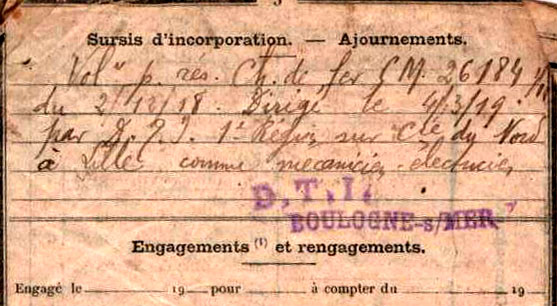 Sursis d'incorporation. — Ajournements.
Vol" p. rés. Ch. de fer C M. 26184
du 2/12/18. Dirigé le 4/3/19
par D. T. I. 1e Région sur Cie du Nord
à Lille comme mécanicien-électricien
D. T. I.
BOULOGNE-s/MER
Engagements (1) et rengagements.
Engagé le 19 pour à compter du 19